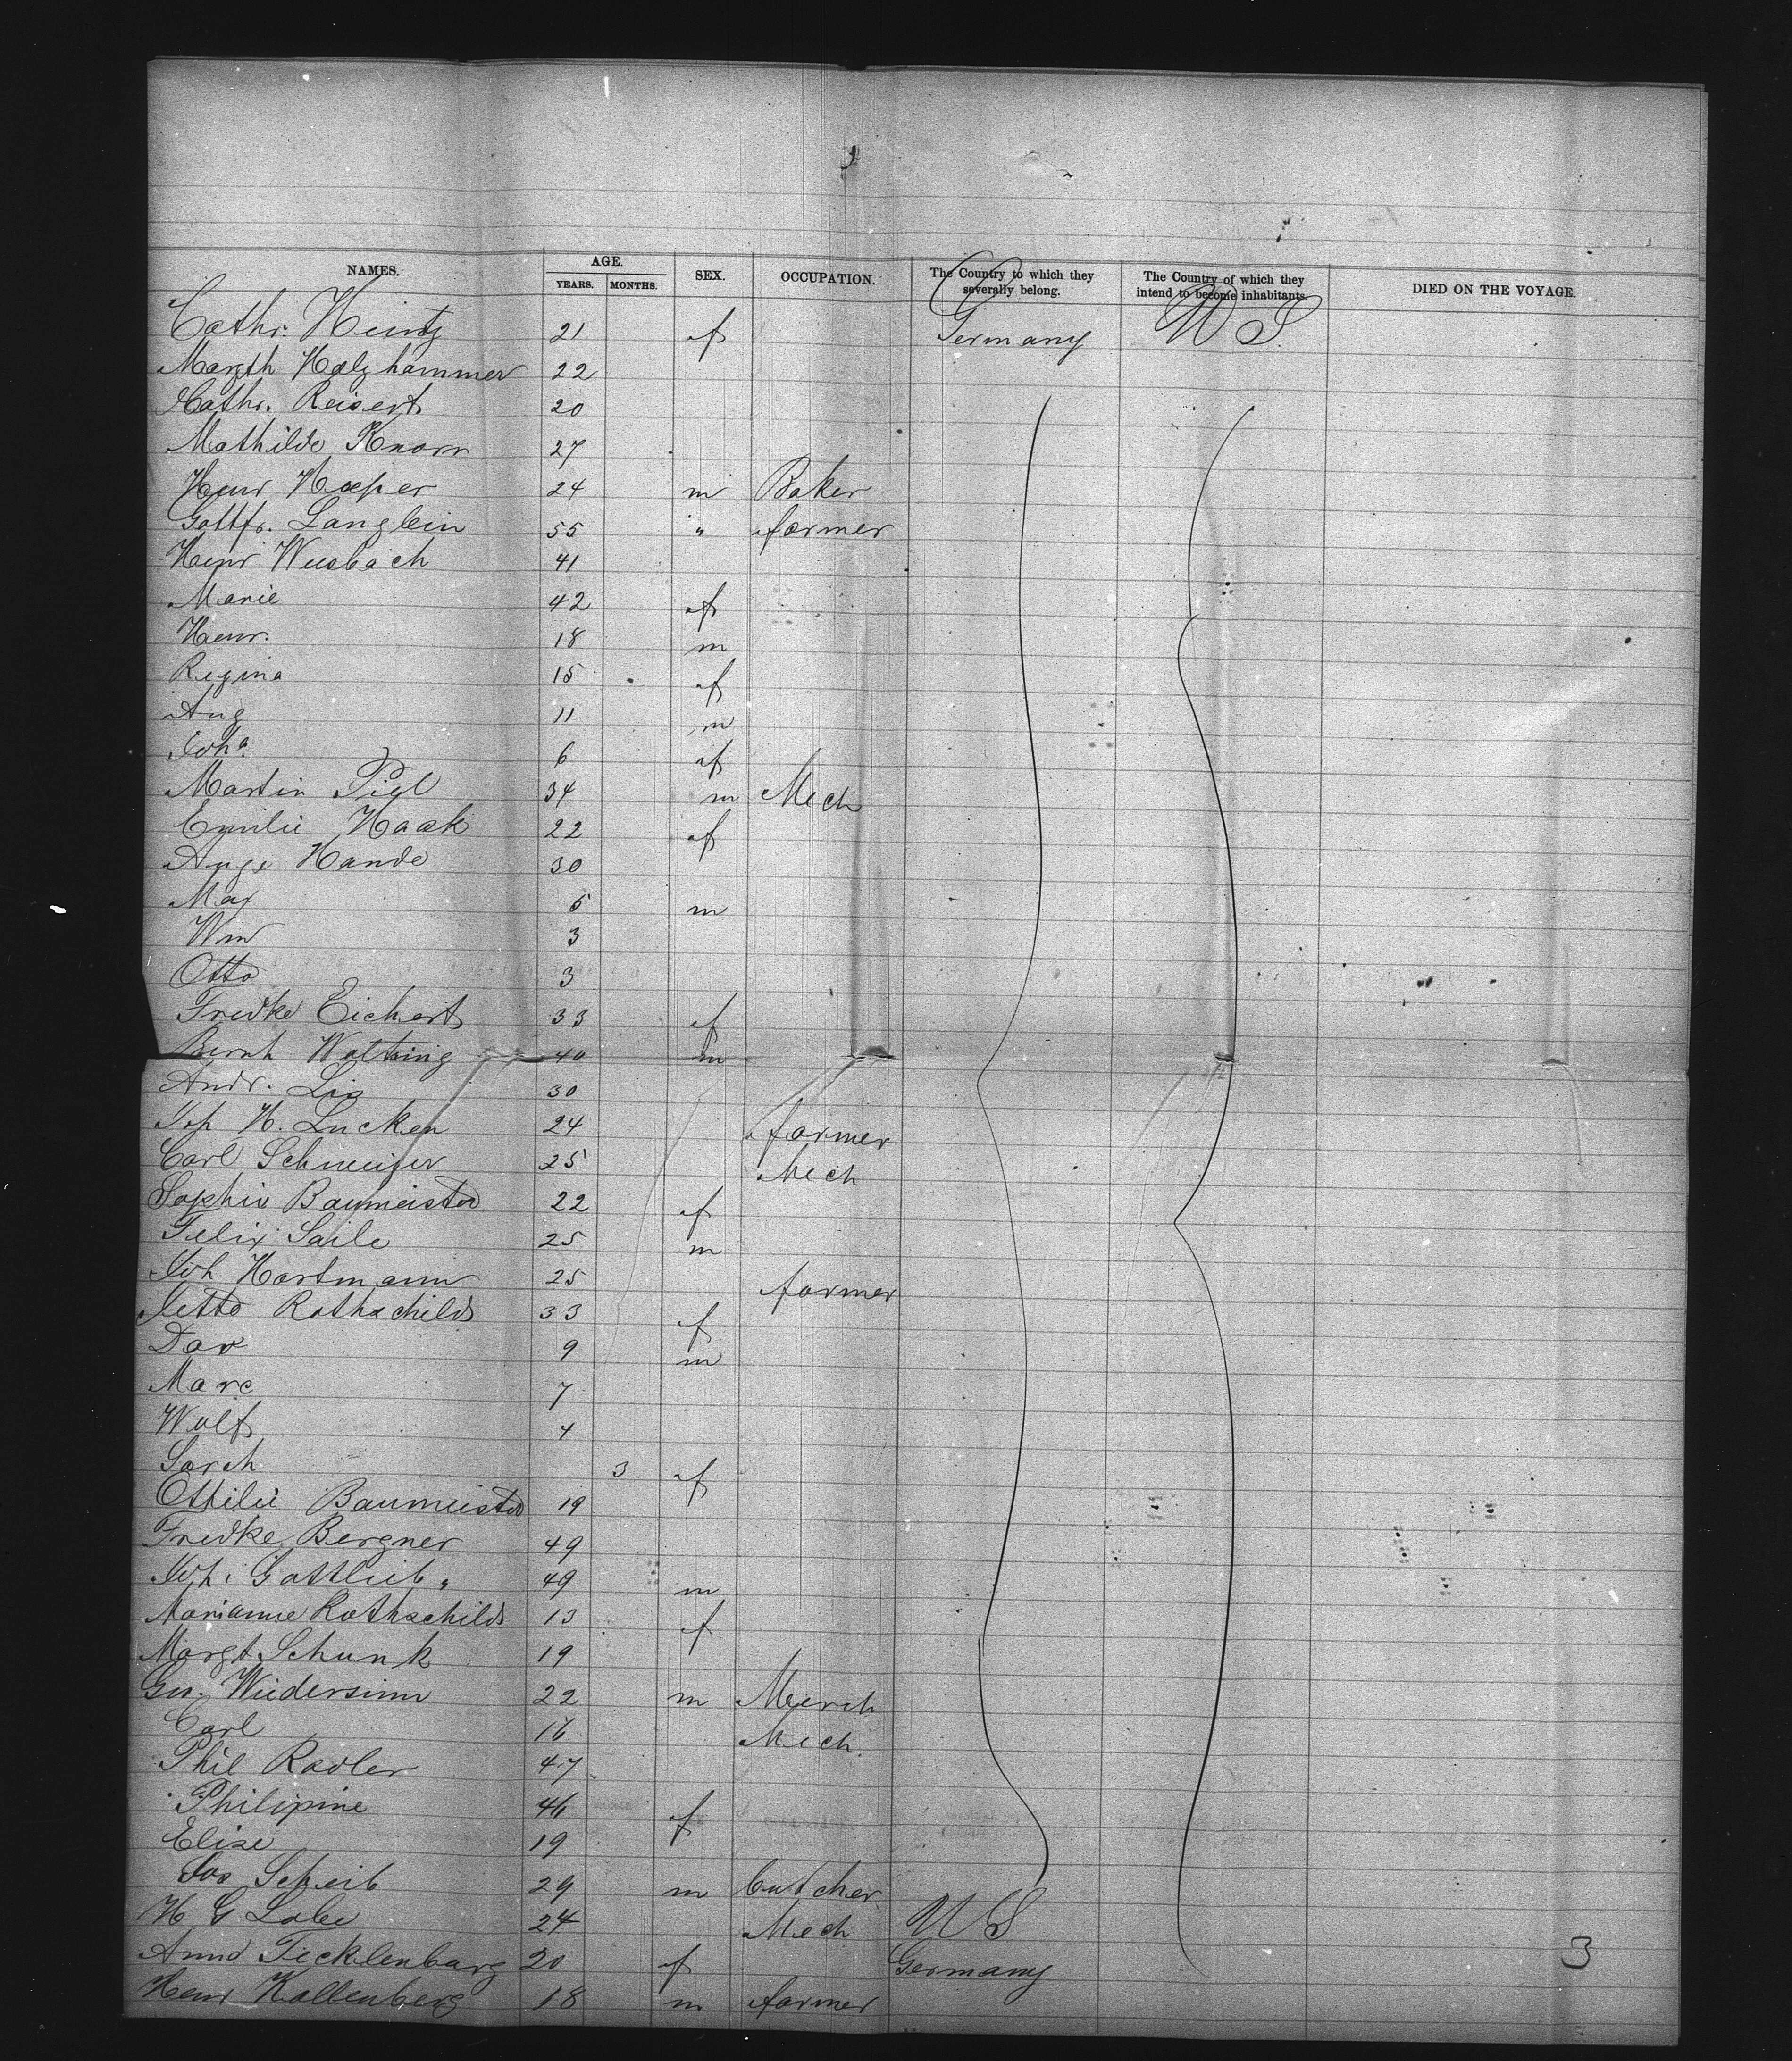 NAMES. AGE. SEX. OCCUPATION. The Country to which they severally belong. The Country of which they intend to become inhabitants. DIED ON THE VOYAGE.
YEARS. MONTHS.
Cathr. Heintz 21 f Germany U S
Margth Holzhammer 22
Cathr. Reisert 20
Mathilde Knorr 27
Henr Hoeper 24 m Baker
Gottfr. Langbein 55 " farmer
Henr Weesbach 41
Marie 42 f
Henr. 18 m
Regina 15 f
Aug 11 m
Joha 6 f
Martin Pigl 34 m Mech
Emilie Haak 22 f
Auge Hande 30
Max 5 m
Wm 3
Otto 3
Fredke Eichert 33 f
Bernh Walthing 40 m
Andr. Lis 30
Joh H. Lucken 24 farmer
Carl Schmeiser 25 Mech
Sophie Baumeister 22 f
Felix Saile 25 m
Joh Hartmann 25 farmer
Jette Rothschilds 33 f
Dav 9 m
Marc 7
Wolf 4
Sarah 3 f
Ottilie Baumeister 19
Fredke Bergner 49
Joh. Gottlieb " 49 m
Marianne Rothschilds 13 f
Margt Schunk 19
Geo. Wiedersinn 22 m Merch
Carl 16 Mech.
Phil Radler 47
Philipine 46 f
Elise 19
Jos Scheib 29 m butcher
H G Labe 24 Mech U S
Anna Tecklenburg 20 f Germany
Henr Kallenberg 18 m farmer
3